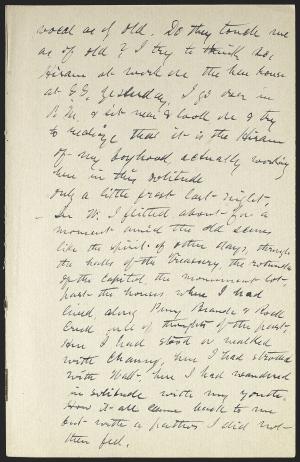 vocal as of old. Do they touch me
as of old? I try to think so.
Hiram at work on the hen house
at S.S. yesterday. I go over in
P.M. & sit near & look on & try
to realize that it is the Hiram
of my boyhood, actually working
here in this solitude
Only a little frost last night.
- In W. I flitted about for a
moment amid the old scenes
like the spirit of other days, through
the halls of the Treasury, the rotunda
of the Capitol, the monument lot,
past the houses where I had
lived, along Piney Branch & Rock
Creek full of thoughts of the past.
Here I had stood or walked
with Channy, here I had strolled
with Walt, here I had wandered
in solitude with my youth.
How it all came back to me
but with a pathos I did not
then feel.